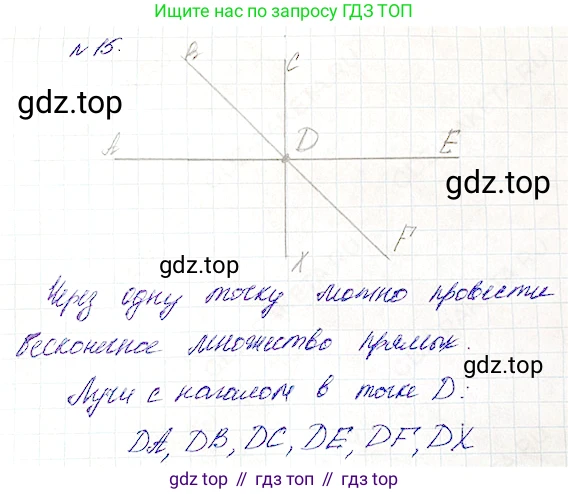 Ищите нас по запросу ГДЗ ТОП
№ 15.
B C
gdz.top
A D E
gdz.top
F
gdz.top X
Через одну точку можно провести
бесконечное множество прямых.
gdz.top
Лучи с началом в точке D:
DA, DB, DC, DE, DF, DX
gdz.top // gdz.top // gdz.top